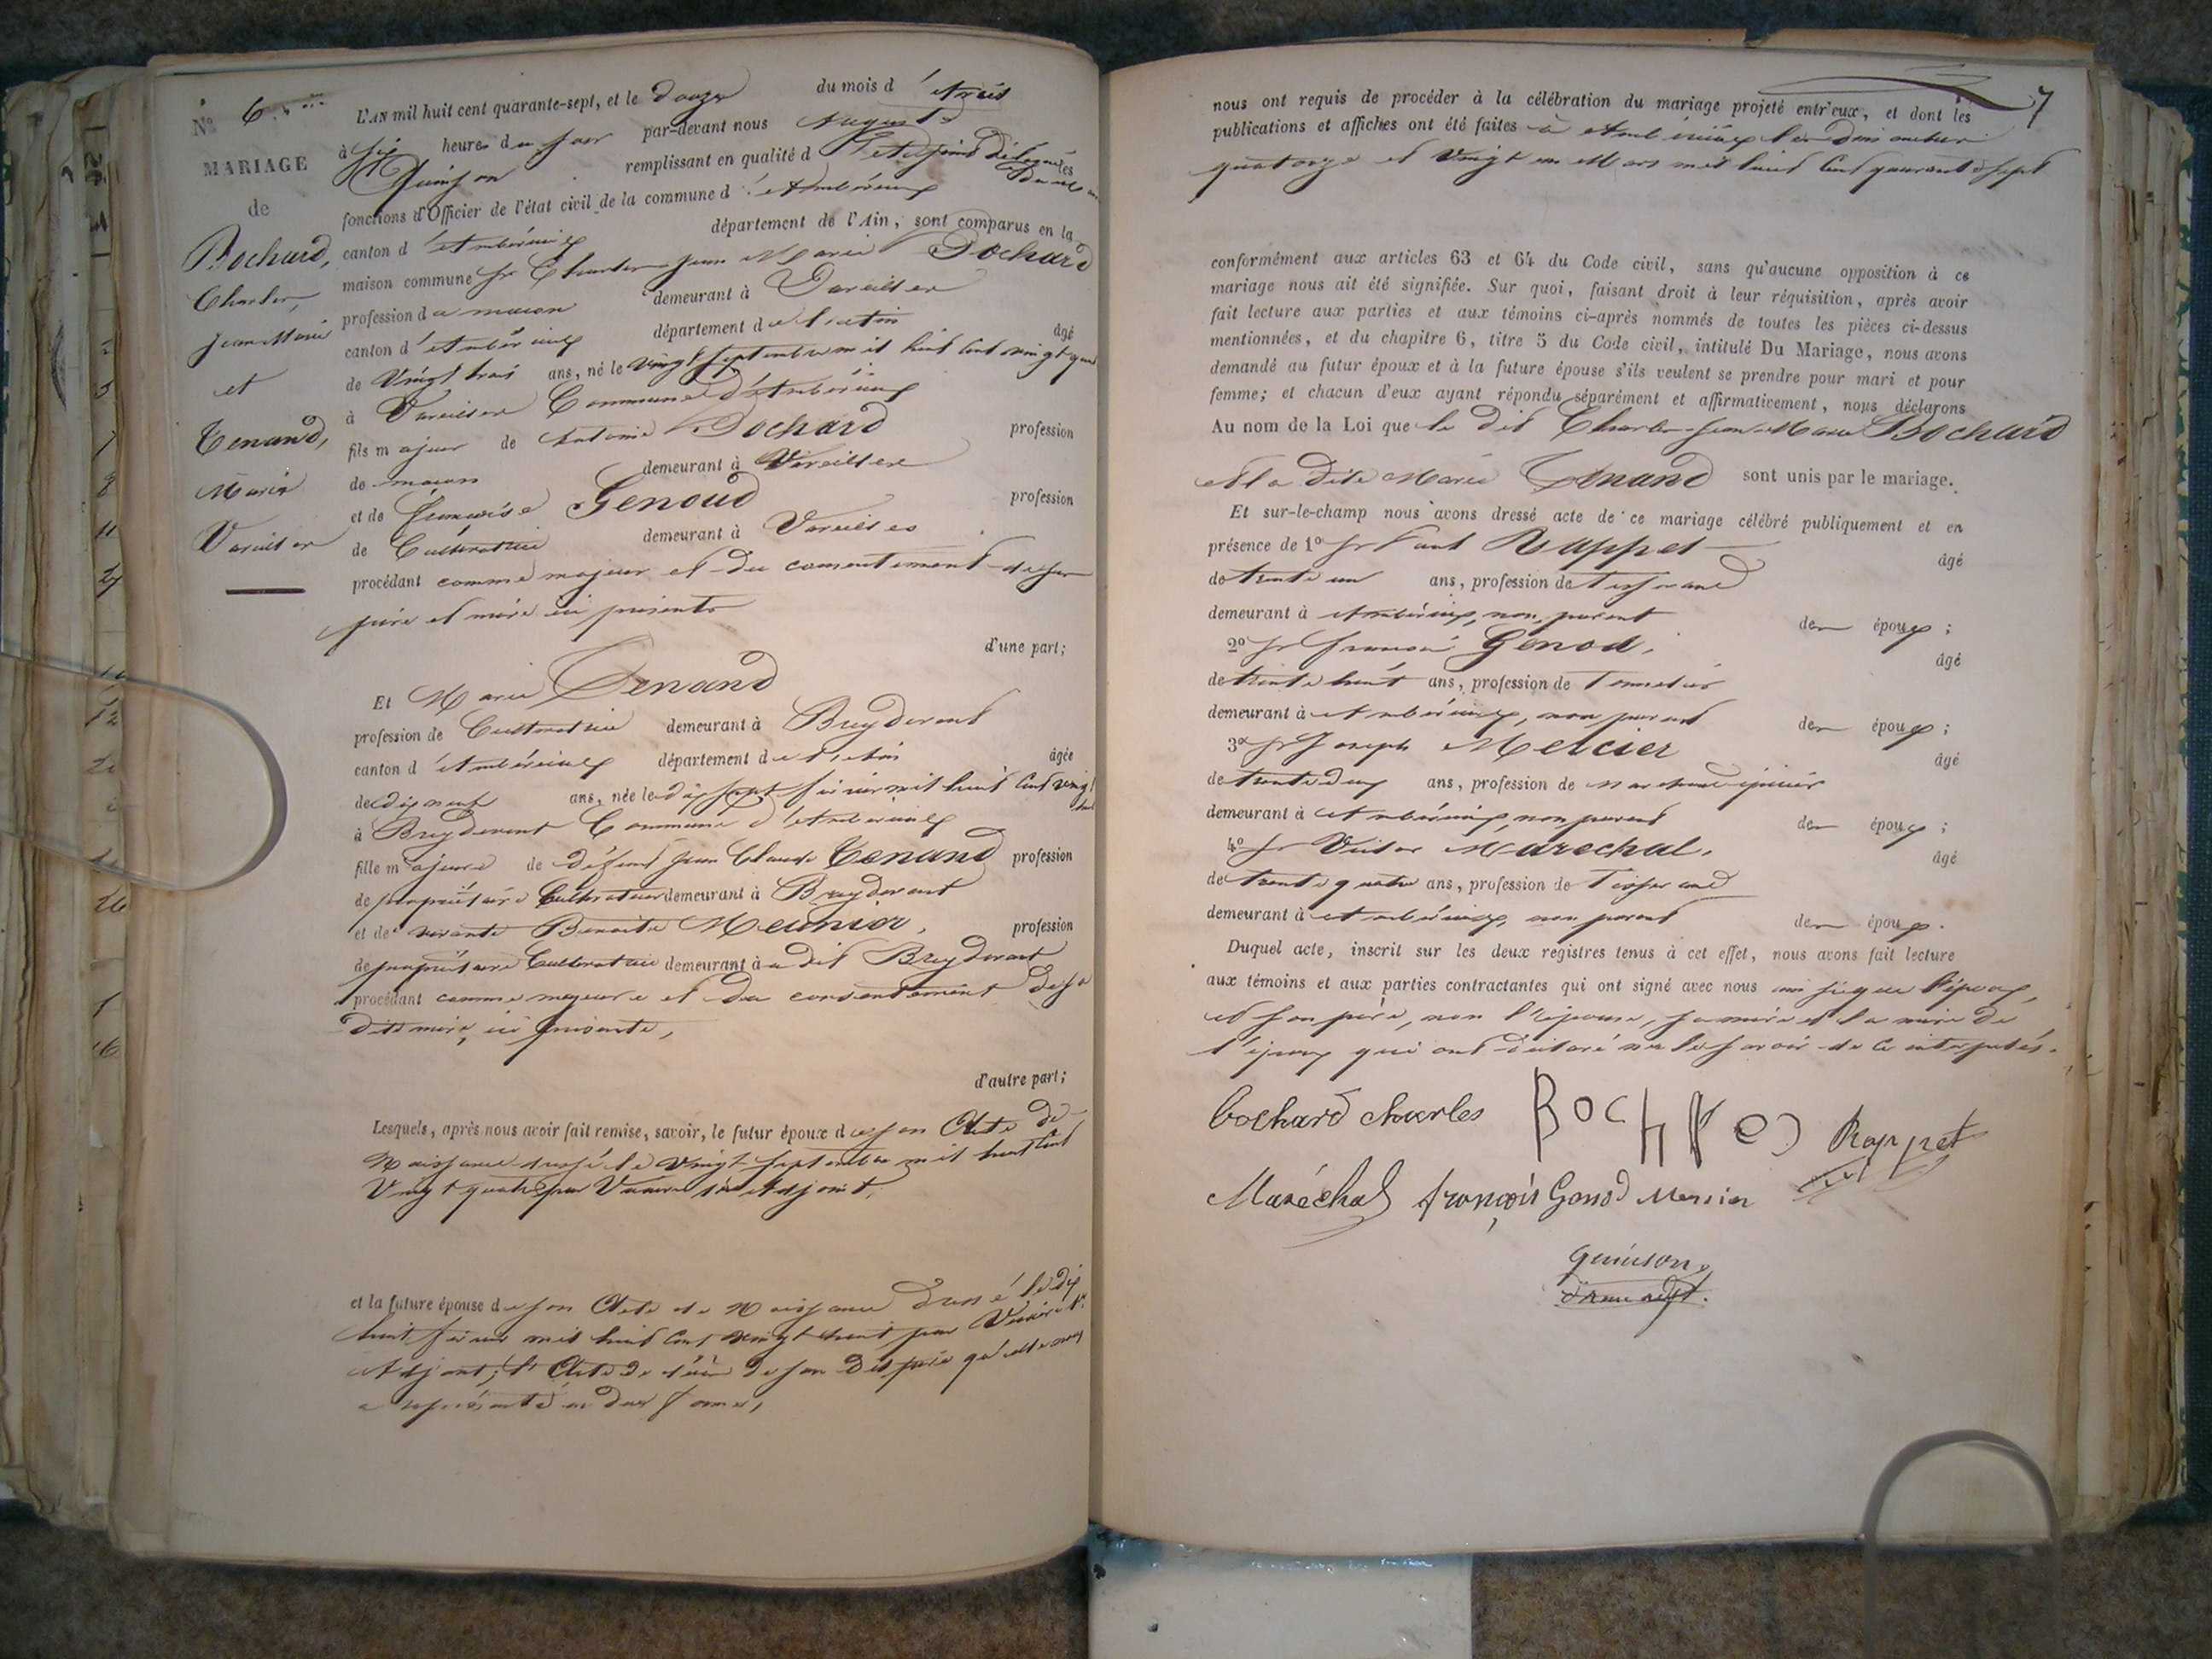 N.º 6.
MARIAGE
de
Bochard,
Charles,
Jean Marie
et
Tenand,
Marie
Vareilles
L'AN mil huit cent quarante-sept, et le douze du mois d'Avril
à six heures du soir par-devant nous Auguste
Quinson remplissant en qualité d'Adjoint délégué les
fonctions d'Officier de l'état civil de la commune d'Ambérieux
canton d'Ambérieux département de l'Ain, sont comparus en la
maison commune sr Charles Jean Marie Bochard
profession de maçon demeurant à Vareilles
canton d'Ambérieux département de l'Ain âgé
de vingt trois ans, né le vingt septembre mil huit cent vingt quatre
à Vareilles Commune d'Ambérieux
fils majeur de Antoine Bochard profession
de maçon demeurant à Vareilles
et de Françoise Genoud profession
de Cultivatrice demeurant à Vareilles
procédant comme majeur et du consentement de ses
père et mère ici présents
d'une part;
Et Marie Tenand
profession de Cultivatrice demeurant à Breydevent
canton d'Ambérieux département de l'Ain âgée
de dix neuf ans, née le dix sept février mil huit cent vingt huit
à Breydevent Commune d'Ambérieux
fille majeure de défunt Jean Claude Tenand profession
de propriétaire Cultivateur demeurant à Breydevent
et de vivante Benoite Meunier, profession
de propriétaire Cultivatrice demeurant à dit Breydevent
procédant comme majeure et du consentement de sa
dite mère, ici présente,
d'autre part;
Lesquels, après nous avoir fait remise, savoir, le futur époux de son Acte de
Naissance dressé le vingt septembre mil huit cent
vingt quatre par Adjoint,
et la future épouse de son Acte de Naissance dressé le dix
huit février mil huit cent vingt huit par
Adjoint; l'Acte de décès de son dit père qu'elle nous
a représenté en due forme,
7
nous ont requis de procéder à la célébration du mariage projeté entr'eux, et dont les
publications et affiches ont été faites à Ambérieux les dimanches
quatorze et vingt un Mars mil huit cent quarante sept
conformément aux articles 63 et 64 du Code civil, sans qu'aucune opposition à ce
mariage nous ait été signifiée. Sur quoi, faisant droit à leur réquisition, après avoir
fait lecture aux parties et aux témoins ci-après nommés de toutes les pièces ci-dessus
mentionnées, et du chapitre 6, titre 5 du Code civil, intitulé Du Mariage, nous avons
demandé au futur époux et à la future épouse s'ils veulent se prendre pour mari et pour
femme; et chacun d'eux ayant répondu séparément et affirmativement, nous déclarons
Au nom de la Loi que le dit Charles Jean Marie Bochard
et la dite Marie Tenand sont unis par le mariage.
Et sur-le-champ nous avons dressé acte de ce mariage célébré publiquement et en
présence de 1º sr Rappet âgé
de trente un ans, profession de Tisserand
demeurant à Ambérieux, non parent des époux;
2º sr François Genod, âgé
de trente huit ans, profession de Tonnelier
demeurant à Ambérieux, non parent des époux;
3º sr Joseph Mercier âgé
de trente deux ans, profession de marchand épicier
demeurant à Ambérieux, non parent des époux;
4º sr Victor Maréchal, âgé
de trente quatre ans, profession de Tisserand
demeurant à Ambérieux, non parent des époux.
Duquel acte, inscrit sur les deux registres tenus à cet effet, nous avons fait lecture
aux témoins et aux parties contractantes qui ont signé avec nous ainsi que l'époux,
et son père, non l'épouse, sa mère et la mère de
l'époux qui ont déclaré ne le savoir de ce interpelés.
bochard charles BOCHRD Rappet
Maréchal françois Genod Mercier
quinson